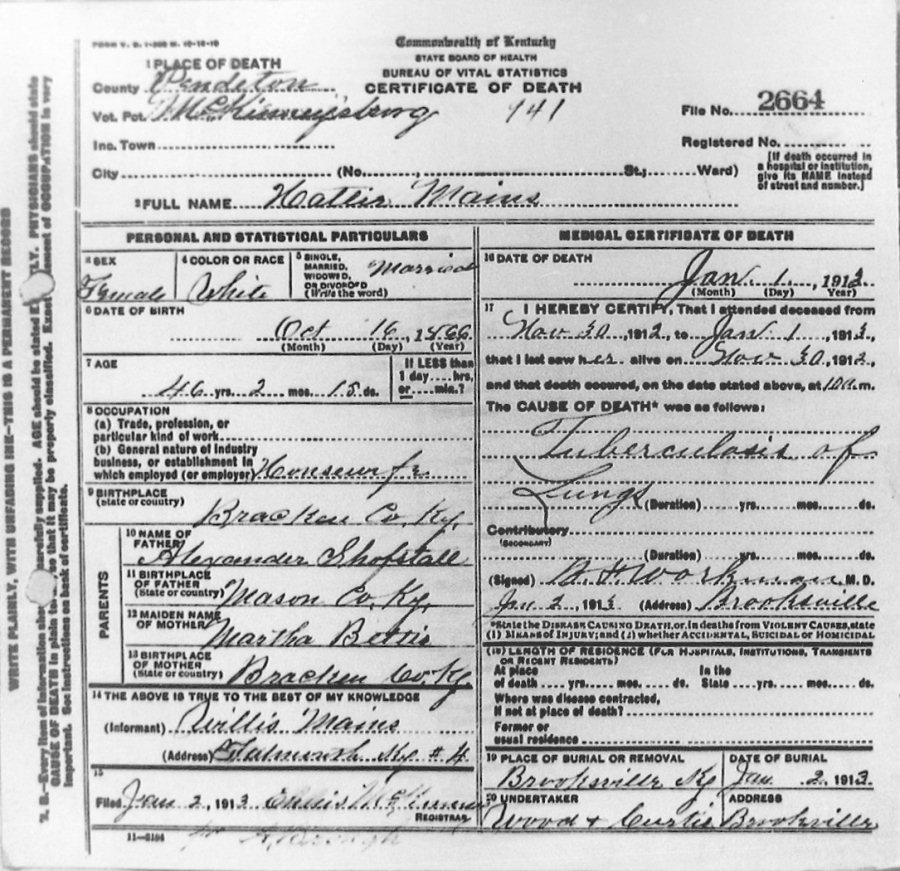 FORM V. S. 1-300 M. 10-16-10
Commonwealth of Kentucky
STATE BOARD OF HEALTH
BUREAU OF VITAL STATISTICS
CERTIFICATE OF DEATH
1 PLACE OF DEATH
County Pendleton
Vot. Pct. McKinneysburg 941
Inc. Town
City (No. , St.; Ward)
File No. 2664
Registered No.
[If death occurred in
a hospital or institution,
give its NAME instead
of street and number.]
2 FULL NAME Hattie Mains
PERSONAL AND STATISTICAL PARTICULARS
3 SEX
Female
4 COLOR OR RACE
White
5 SINGLE,
MARRIED,
WIDOWED,
OR DIVORCED
(Write the word)
Married
6 DATE OF BIRTH
Oct 16, 1866
(Month) (Day) (Year)
7 AGE
46 yrs. 2 mos. 15 ds.
If LESS than
1 day....hrs.
or....min.?
8 OCCUPATION
(a) Trade, profession, or
particular kind of work
(b) General nature of industry
business, or establishment in
which employed (or employer) Housewife
9 BIRTHPLACE
(State or country)
Bracken Co. Ky.
PARENTS
10 NAME OF
FATHER
Alexander Shofstall
11 BIRTHPLACE
OF FATHER
(State or country) Mason Co. Ky.
12 MAIDEN NAME
OF MOTHER Martha Bettis
13 BIRTHPLACE
OF MOTHER
(State or country) Bracken Co. Ky
14 THE ABOVE IS TRUE TO THE BEST OF MY KNOWLEDGE
(Informant) Willis Mains
(Address) Falmouth Ky # 4
15
Filed Jan 2, 1913
REGISTRAR
11-5184
MEDICAL CERTIFICATE OF DEATH
16 DATE OF DEATH
Jan. 1, 1913
(Month) (Day) (Year)
17 I HEREBY CERTIFY, That I attended deceased from
Nov 30, 1912, to Jan 1, 1913,
that I last saw her alive on Nov 30, 1912,
and that death occured, on the date stated above, at 10 a.m.
The CAUSE OF DEATH* was as follows:
Tuberculosis of
Lungs
(Duration) yrs. mos. ds.
Contributory
(SECONDARY)
(Duration) yrs. mos. ds.
(Signed) Workman M. D.
Jan 2, 1913 (Address) Brooksville
*State the DISEASE CAUSING DEATH, or, in deaths from VIOLENT CAUSES, state
(1) MEANS OF INJURY; and (2) whether ACCIDENTAL, SUICIDAL or HOMICIDAL
(18) LENGTH OF RESIDENCE (FOR HOSPITALS, INSTITUTIONS, TRANSIENTS
OR RECENT RESIDENTS)
At place
of death....yrs....mos....ds.
In the
State....yrs....mos....ds.
Where was disease contracted,
if not at place of death?
Former or
usual residence
19 PLACE OF BURIAL OR REMOVAL
Brooksville Ky
DATE OF BURIAL
Jan. 2 1913
20 UNDERTAKER
Wood & Curtis
ADDRESS
Brooksville
WRITE PLAINLY, WITH UNFADING INK—THIS IS A PERMANENT RECORD
CAUSE OF DEATH in plain
so that it may be properly classified.
important. See instructions on back of certificate.